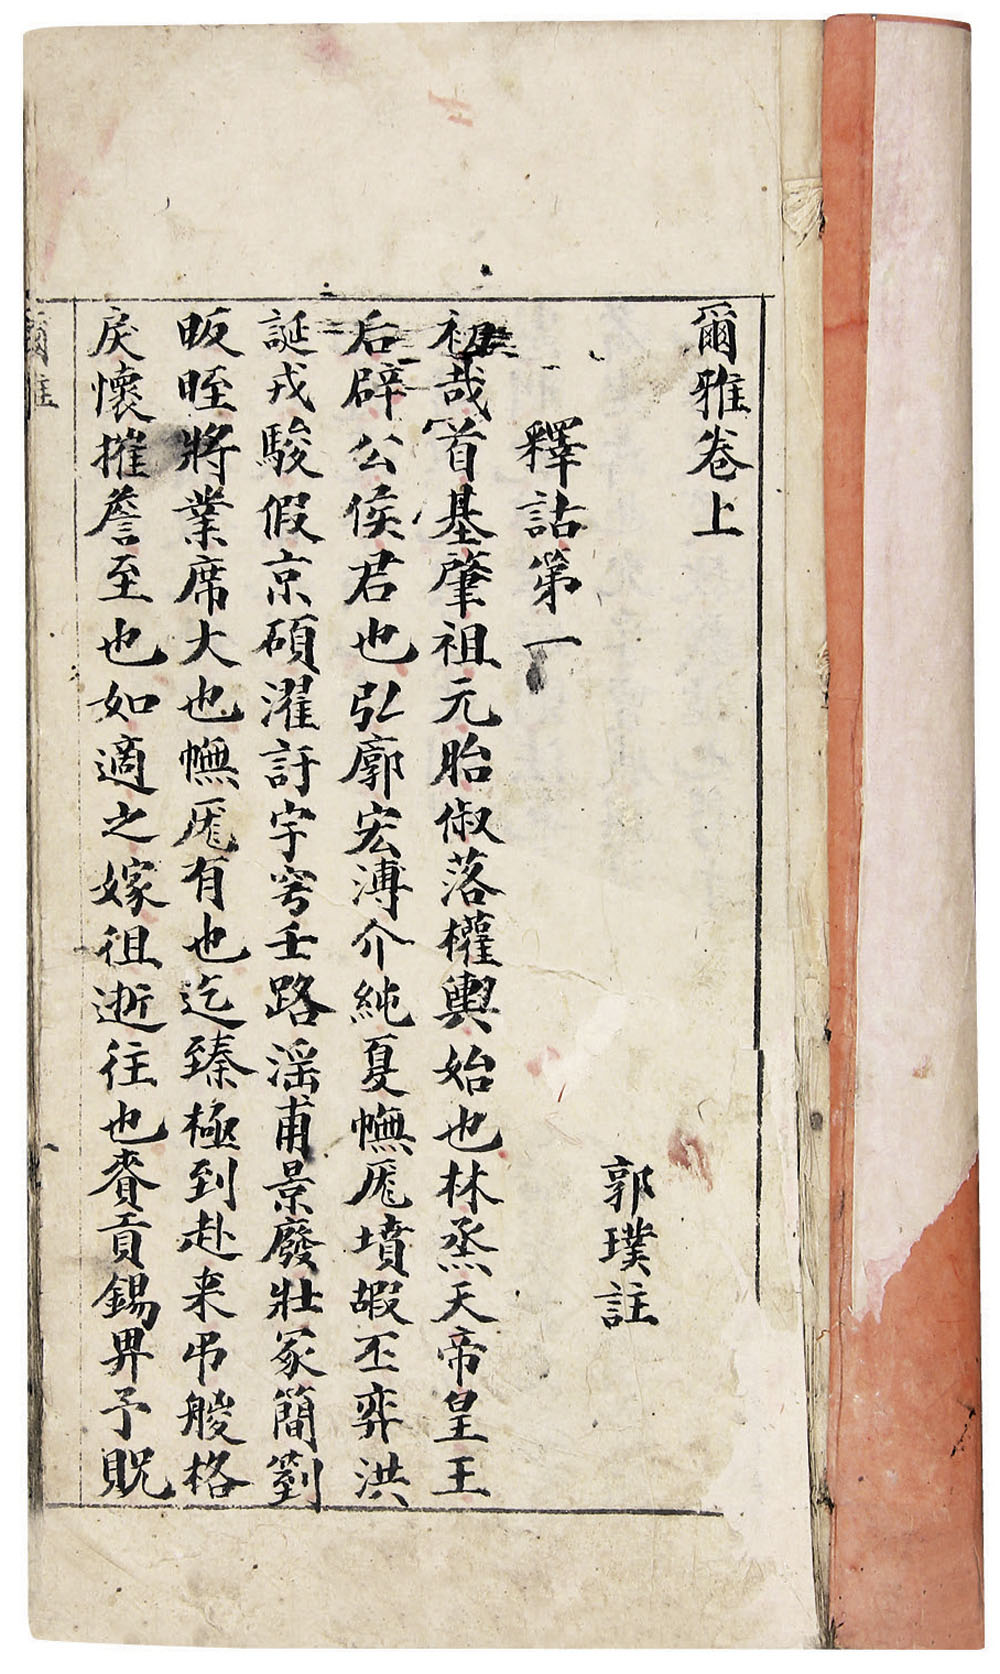 爾雅卷上
郭璞註
釋詁第一
初哉首基肇祖元胎俶落權輿始也林烝天帝皇王
后辟公侯君也弘廓宏溥介純夏幠厖墳嘏丕弈洪
誕戎駿假京碩濯訏宇穹壬路淫甫景廢壯冢簡箌
昄晊將業席大也幠厖有也迄臻極到赴来吊艐格
戾懷摧詹至也如適之嫁徂逝往也賚貢錫畀予貺